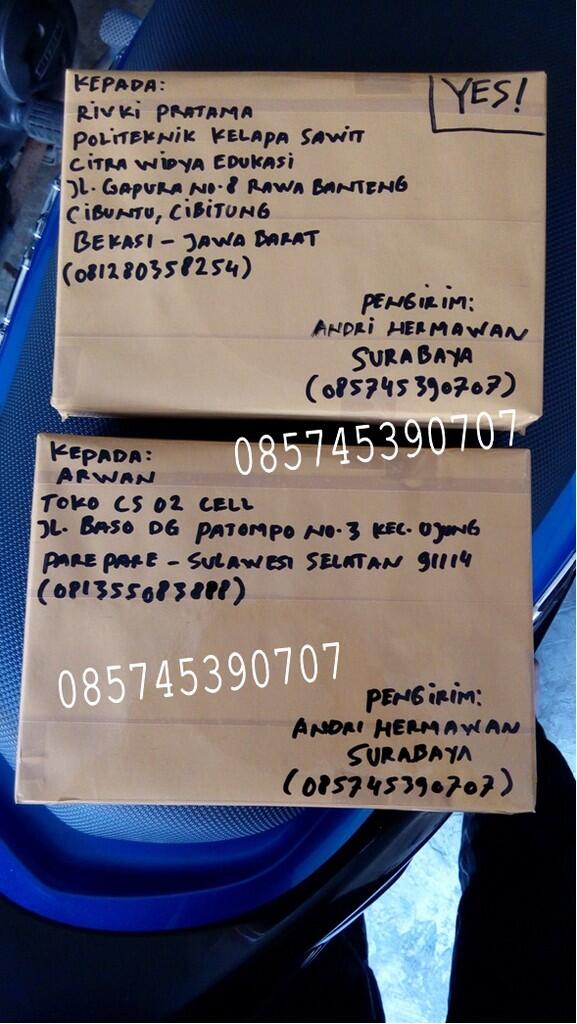 KEPADA:
RIVKI PRATAMA
POLITEKNIK KELAPA SAWIT
CITRA WIDYA EDUKASI
JL. GAPURA NO.8 RAWA BANTENG
CIBUNTU, CIBITUNG
BEKASI - JAWA BARAT
(081280358254)
YES!
PENGIRIM:
ANDRI HERMAWAN
SURABAYA
(085745390707)
085745390707
KEPADA:
ARWAN
TOKO CS 02 CELL
JL. BASO DG PATOMPO NO.3 KEC. UJUNG
PARE PARE - SULAWESI SELATAN 91114
(081355083888)
085745390707
PENGIRIM:
ANDRI HERMAWAN
SURABAYA
(085745390707)